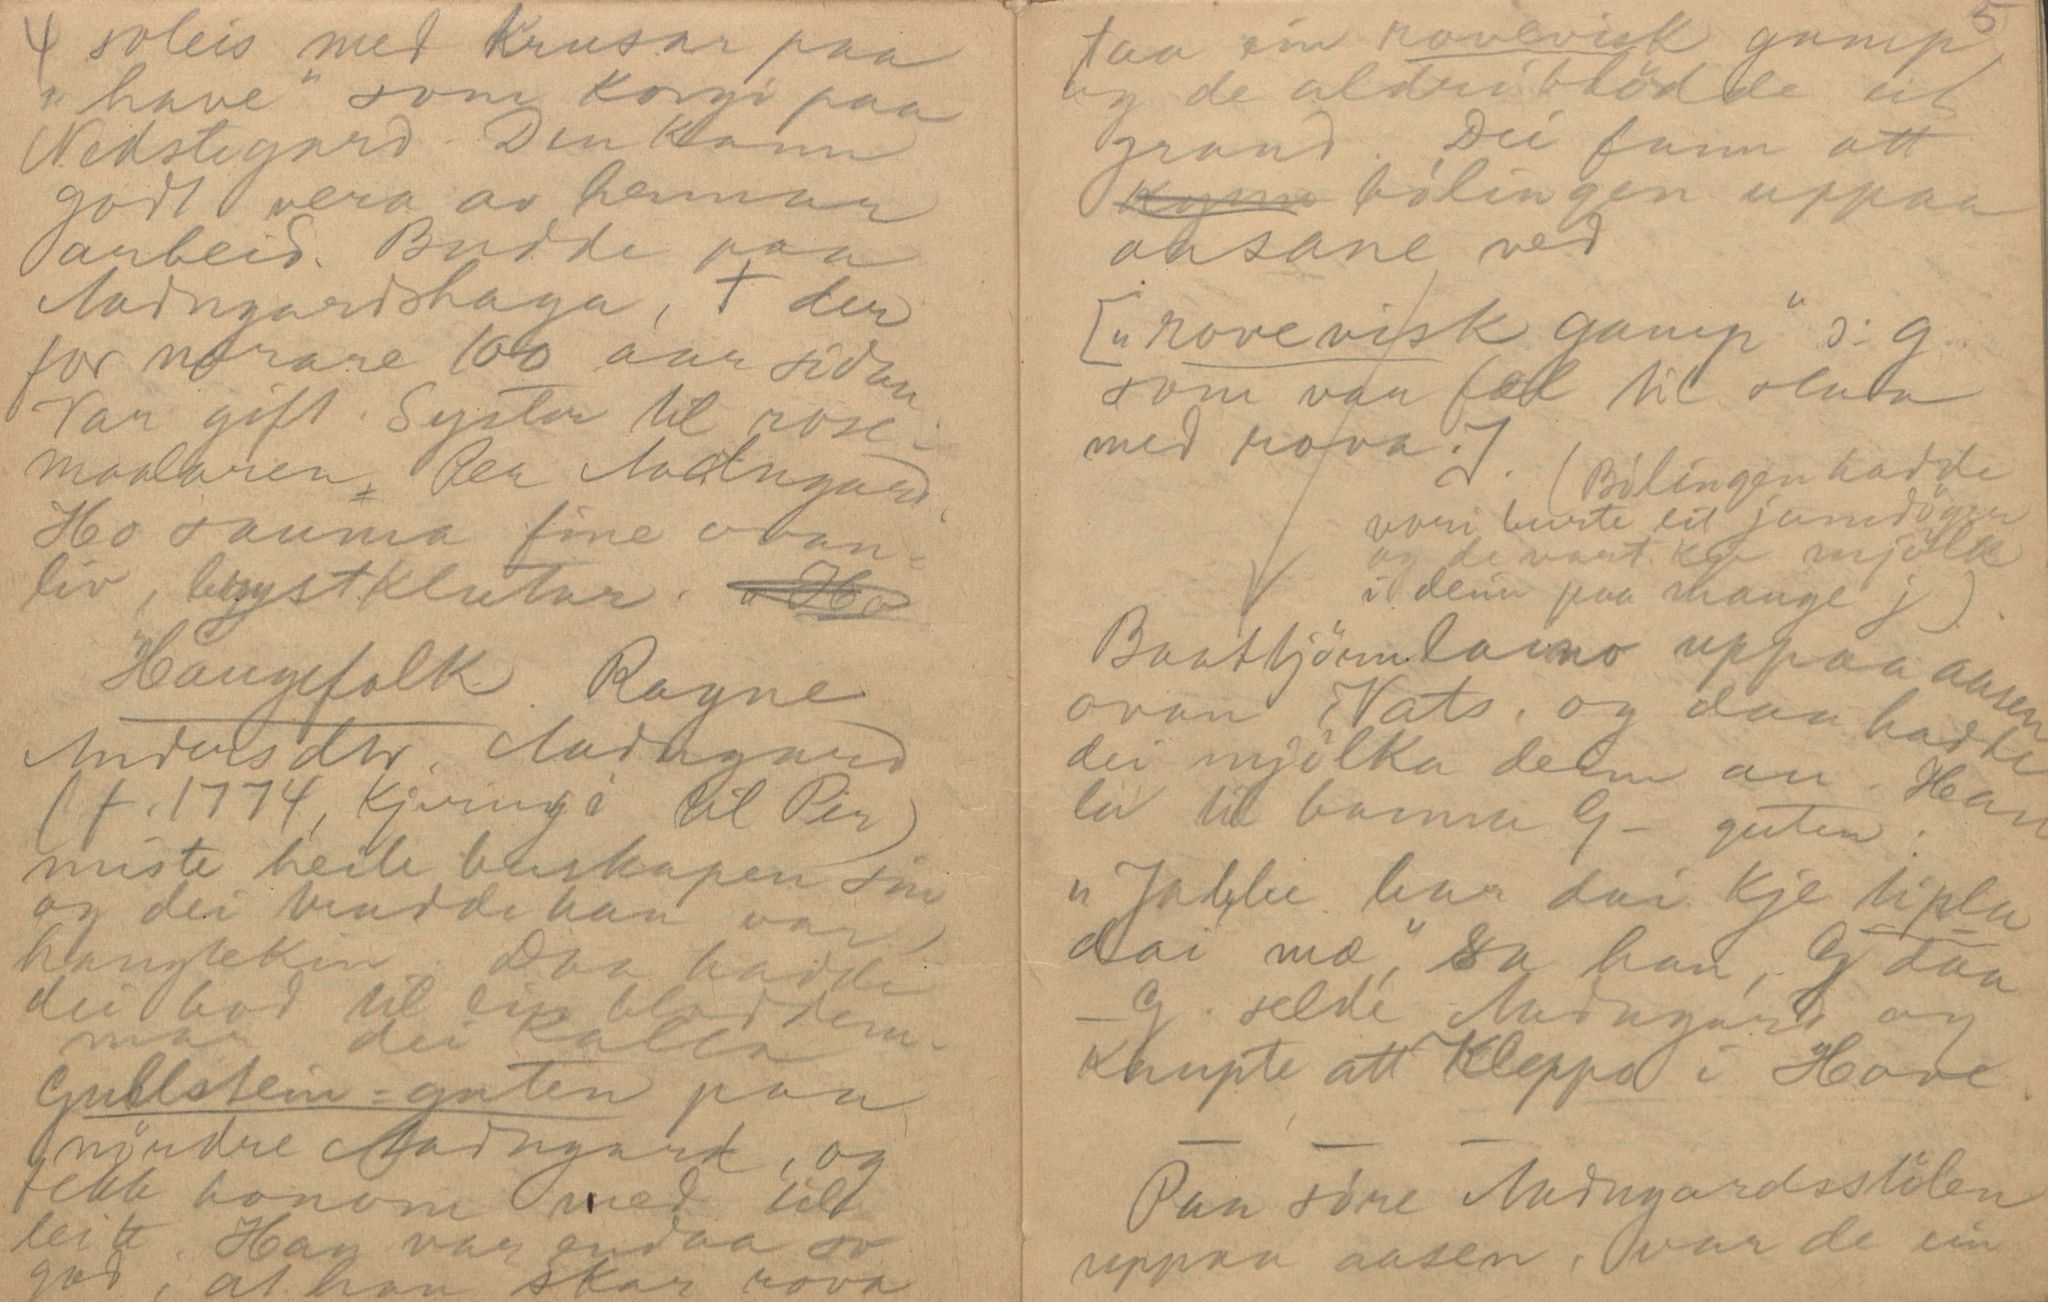 4 soleis med krusar paa
"have" som Korgi paa
Nedstegard. Den kann
godt vera av hennar
arbeid. Budde paa
Aadngardshaga, † der
for nærare 100 aar sidan
Var gift. Syster til rose-
maalaren, Per Aadngard.
Ho sauma fine ovan-
liv, brystklutar. "Ho
Haugefolk. Ragne
Andersdtr. Aadngard
(f. 1774, kjeringi til Per)
miste heile buskapen sin
og dei trudde han var
haugtekin. Daa hadde
dei bod til ein bloddem-
mar dei kalla
Gullstein-guten paa
nördre Aadngard, og
fekk honom med til
leitt. Han var endaa so
god, at han skar rova
5
taa ein rovevisk gamp
og de aldri blödde eit
grand. Dei fann att
kyrne bölingen uppaa
aasane ved
["rovevisk gamp" ɔ: g.
som var fæl til slaa
med rova.].
(Bölingen hadde
vori burte eit jamdöger
og de vart kje mjölk
i deim paa mange j)
Baatbjörnlaino uppaa aasen
ovan Nats. og daa hadde
dei mjölka deim au. Han
lei til banna G- guten.
"Jabbe har dai kje tipla
dai mæ", sa han, G daa
G. selde Aadngard og
kaupte att Kleppo i Hove.
Paa söre Aadngardsstölen
uppaa aasen, var de ein